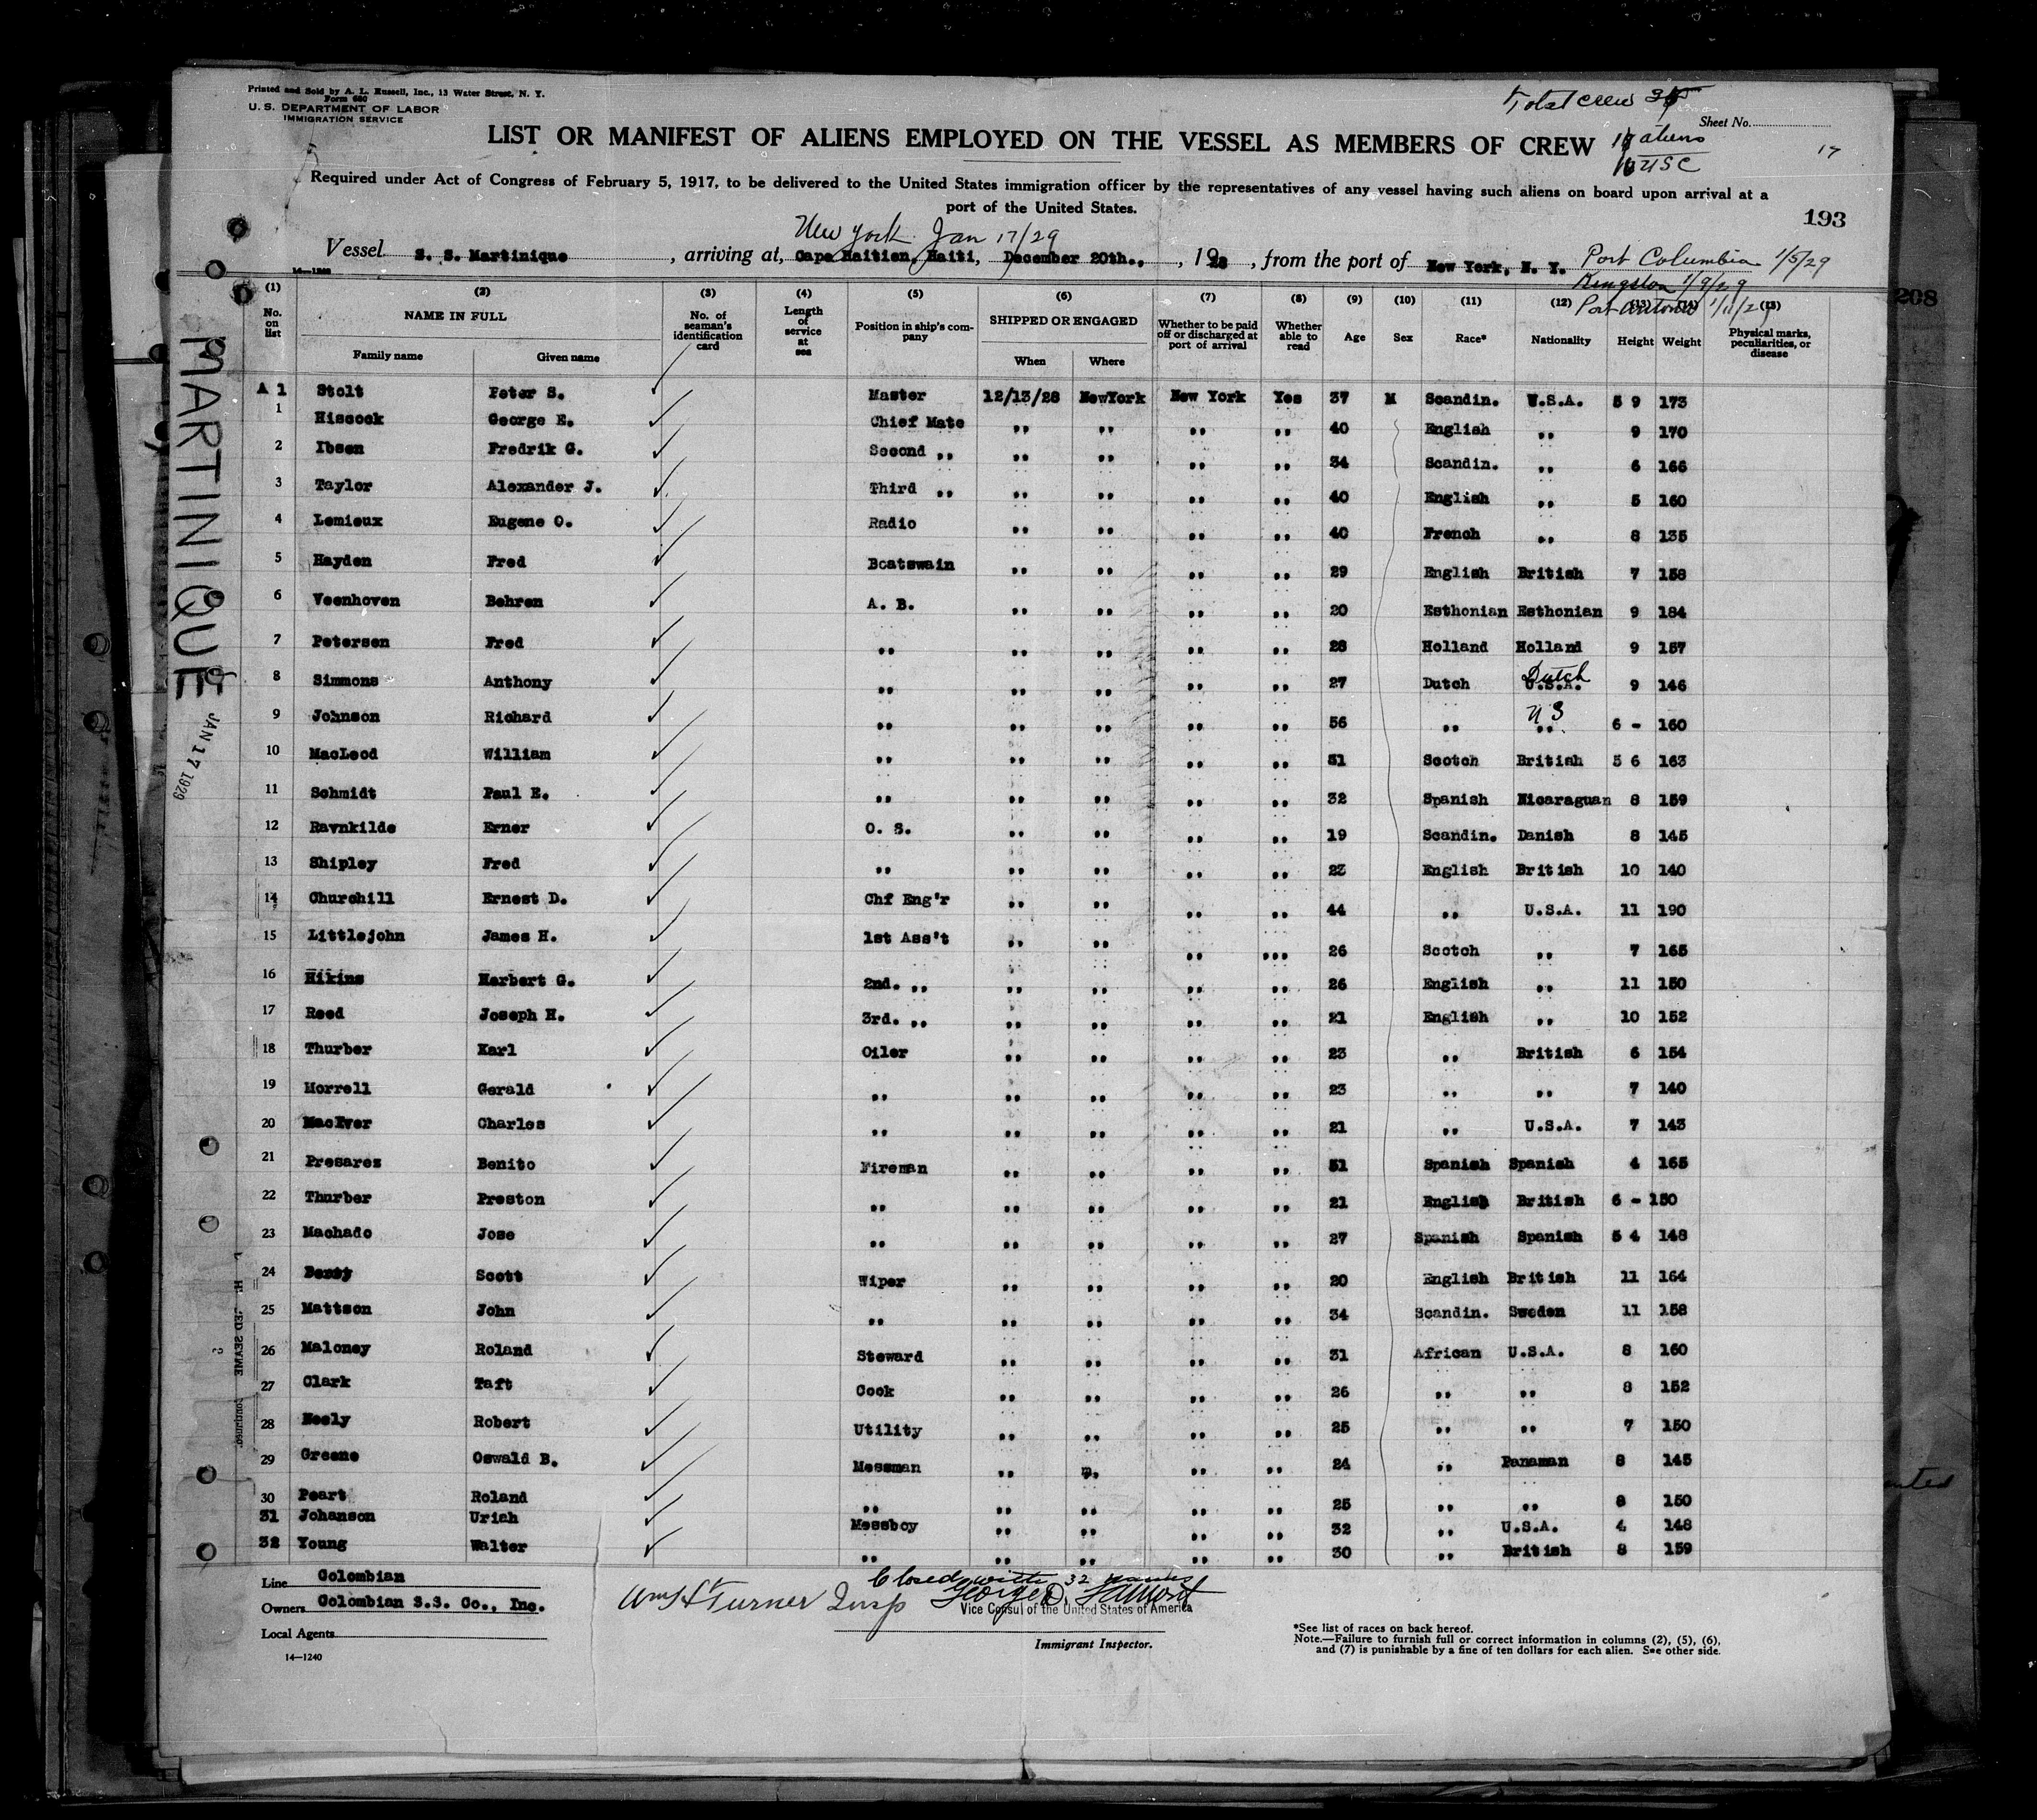 Printed and Sold by A. L. Russell, Inc., 13 Water Street, N. Y.
Form 680
U. S. DEPARTMENT OF LABOR
IMMIGRATION SERVICE
Total crew
Sheet No.
LIST OR MANIFEST OF ALIENS EMPLOYED ON THE VESSEL AS MEMBERS OF CREW
aliens
USC
17
Required under Act of Congress of February 5, 1917, to be delivered to the United States immigration officer by the representatives of any vessel having such aliens on board upon arrival at a
port of the United States.
193
New York Jan 17/29
Vessel S. S. Martinique, arriving at, Cape Haitien, Haiti, December 20th., 1928, from the port of New York, N. Y. Port Columbia 1/5/29
Kingston 1/9/29
Port Antonio 1/11/29
14—1240
208
(1) (2) (3) (4) (5) (6) (7) (8) (9) (10) (11) (12) (13) (14) (15)
No. on list NAME IN FULL Family name Given name No. of seaman's identification card Length of service at sea Position in ship's company SHIPPED OR ENGAGED When Where Whether to be paid off or discharged at port of arrival Whether able to read Age Sex Race* Nationality Height Weight Physical marks, peculiarities, or disease
▲ 1 Stolt Peter S. ✓ Master 12/13/28 NewYork New York Yes 37 M Scandin. U.S.A. 5 9 173
1 Hiscock George E. ✓ Chief Mate ,, ,, ,, ,, 40 English ,, 9 170
2 Ibsen Fredrik G. ✓ Second ,, ,, ,, ,, ,, 34 Scandin. ,, 6 166
3 Taylor Alexander J. ✓ Third ,, ,, ,, ,, ,, 40 English ,, 5 160
4 Lemieux Eugene O. ✓ Radio ,, ,, ,, ,, 40 French ,, 8 135
5 Hayden Fred ✓ Boatswain ,, ,, ,, ,, 29 English British 7 158
6 Veenhoven Behren ✓ A. B. ,, ,, ,, ,, 20 Esthonian Esthonian 9 184
7 Petersen Fred ✓ ,, ,, ,, ,, ,, 28 Holland Holland 9 157
8 Simmons Anthony ✓ ,, ,, ,, ,, ,, 27 Dutch Dutch U.S.A. 9 146
9 Johnson Richard ✓ ,, ,, ,, ,, ,, 56 ,, U S ,, 6 - 160
10 MacLeod William ✓ ,, ,, ,, ,, ,, 31 Scotch British 5 6 163
11 Schmidt Paul E. ✓ ,, ,, ,, ,, ,, 32 Spanish Nicaraguan 8 159
12 Ravnkilde Erner ✓ O. S. ,, ,, ,, ,, 19 Scandin. Danish 8 145
13 Shipley Fred ✓ ,, ,, ,, ,, ,, 23 English British 10 140
14 Churchill Ernest D. ✓ Chf Eng'r ,, ,, ,, ,, 44 ,, U.S.A. 11 190
15 Littlejohn James H. ✓ 1st Ass't ,, ,, ,, ,,, 26 Scotch ,, 7 165
16 Hikins Herbert G. ✓ 2nd. ,, ,, ,, ,, ,, 26 English ,, 11 150
17 Reed Joseph H. ✓ 3rd. ,, ,, ,, ,, ,, 21 English ,, 10 152
18 Thurber Karl ✓ Oiler ,, ,, ,, ,, 23 ,, British 6 154
19 Morrell Gerald ✓ ,, ,, ,, ,, ,, 23 ,, ,, 7 140
20 MacIver Charles ✓ ,, ,, ,, ,, ,, 21 ,, U.S.A. 7 143
21 Presares Benito ✓ Fireman ,, ,, ,, ,, 31 Spanish Spanish 4 165
22 Thurber Preston ✓ ,, ,, ,, ,, ,, 21 English British 6 - 150
23 Machado Jose ✓ ,, ,, ,, ,, ,, 27 Spanish Spanish 5 4 148
24 Scott ✓ Wiper ,, ,, ,, ,, 20 English British 11 164
25 Mattson John ✓ ,, ,, ,, ,, ,, 34 Scandin. Sweden 11 158
26 Maloney Roland ✓ Steward ,, ,, ,, ,, 31 African U.S.A. 8 160
27 Clark Taft ✓ Cook ,, ,, ,, ,, 26 ,, ,, 8 152
28 Neely Robert ✓ Utility ,, ,, ,, ,, 25 ,, ,, 7 150
29 Greene Oswald B. ✓ Messman ,, ,, ,, ,, 24 ,, Panaman 8 145
30 Peart Roland ✓ ,, ,, ,, ,, ,, 25 ,, ,, 8 150
31 Johanson Uriah ✓ Messboy ,, ,, ,, ,, 32 ,, U.S.A. 4 148
32 Young Walter ✓ ,, ,, ,, ,, ,, 30 ,, British 8 159
MARTINIQUE
JAN 17 1929
Line Colombian
Owners Colombian S.S. Co., Inc.
Local Agents
14—1240
Closed with 32 names
Wm H Turner Insp
George D. Lamont
Vice Consul of the United States of America
Immigrant Inspector.
*See list of races on back hereof.
Note.—Failure to furnish full or correct information in columns (2), (5), (6),
and (7) is punishable by a fine of ten dollars for each alien. See other side.